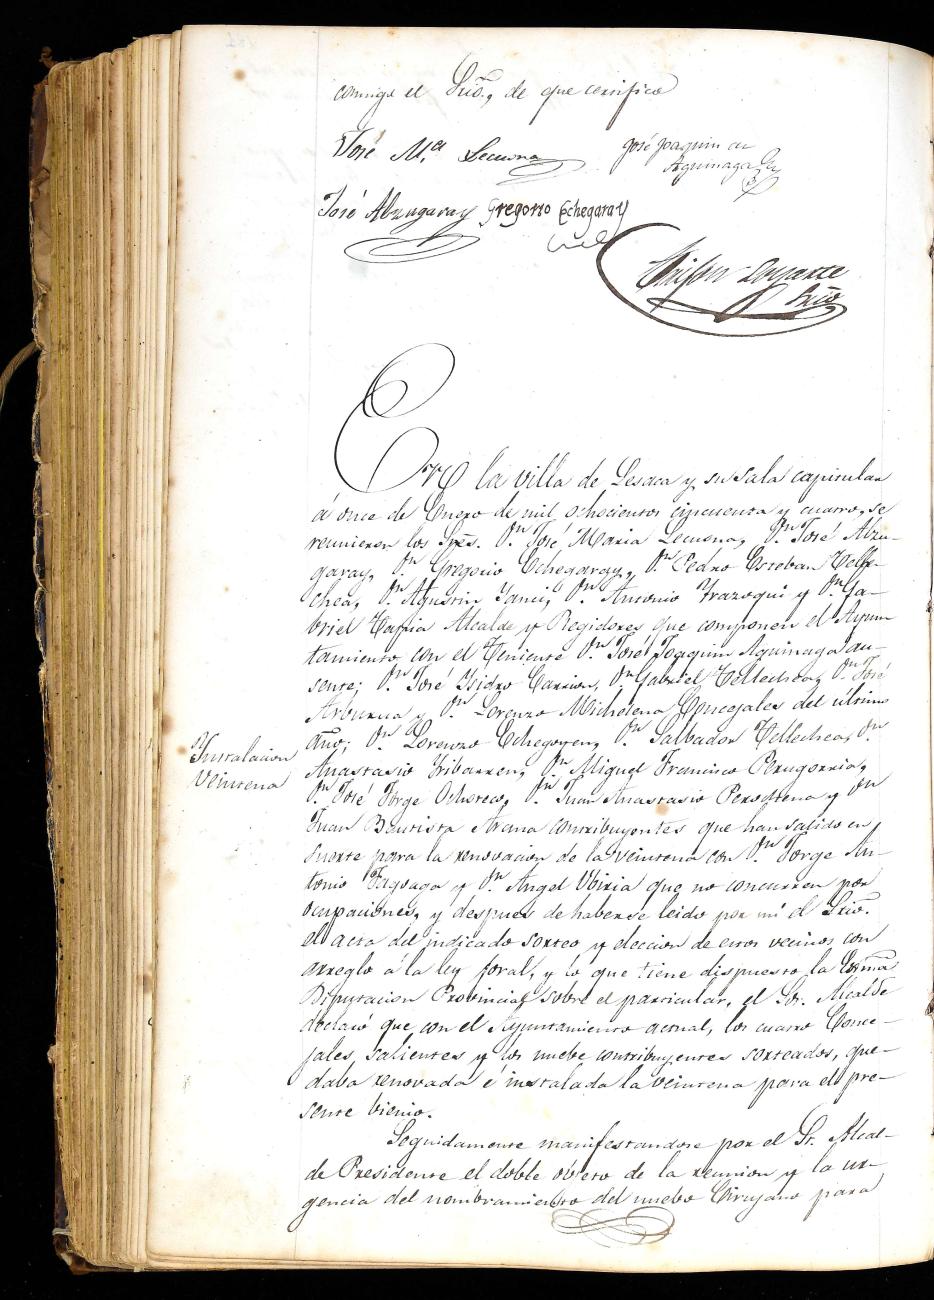 conmigo el Srio., de que certifico
José M.ª Lecuona
José Joaquin de
Aguinaga
José Abzugaray Gregorio Echegaray
Srio
En la villa de Lesaca y su sala capitular
á once de Enero de mil ochocientos cincuenta y cuatro, se
reunieron los Sres. Dn. José Maria Lecuona, Dn. José Abzu-
garay, Dn. Gregorio Echegaray, Dn. Pedro Esteban Telle-
chea, Dn. Agustin Yanci, Dn. Antonio Yrazoqui y Dn. Ga-
briel Tapia Alcalde y Regidores que componen el Ayun
tamiento con el Teniente Dn. José Joaquin Aguinaga au-
sente; Dn. José Isidro Carrion, Dn. Gabriel Tellechea, Dn. José
Arburua y Dn. Lorenzo Michelena Concejales del último
año; Dn. Lorenzo Echegoyen, Dn. Salbador Tellechea, Dn
Ynstalacion
Veintena
Anastasio Yribarren, Dn. Miguel Francisco Perugorria,
Dn. José Jorge Ochoteco, Dn. Juan Anastasio Perochena y Dn
Juan Bautista Arana contribuyentes que han salido en
suerte para la renovacion de la veintena con Dn. Jorge An-
tonio Fagoaga y Dn. Angel Ubiria que no concurren por
ocupaciones, y despues de haberse leido por mi el Srio.
el acta del indicado sorteo y eleccion de esos vecinos con
arreglo á la ley foral, y lo que tiene dispuesto la Exma
Diputacion Provincial sobre el particular, el Sor. Alcalde
declaró que con el Ayuntamiento actual, los cuatro Conce-
jales salientes y los nuebe contribuyentes sorteados, que-
daba renovada é instalada la veintena para el pre-
sente bienio.
Seguidamente manifestandose por el Sr. Alcal-
de Presidente el doble objeto de la reunion y la ur-
gencia del nombramiento del nuebo Cirujano para